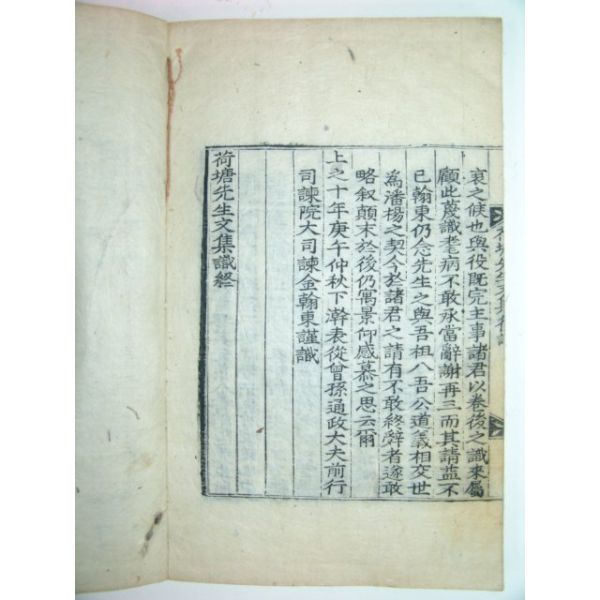 裒之候也與役旣完主事諸君以卷後之識來屬
顧此蔑識耄病不敢承當辭謝再三而其請益不
已翰東仍念先生之與吾祖八吾公道義相交世
爲潘楊之契今於諸君之請有不敢終辭者遂敢
略叙顚末於後仍寓景仰感慕之思云爾
上之十年庚午仲秋下澣表從曾孫通政大夫前行
司諫院大司諫金翰東謹識
荷塘先生文集識終